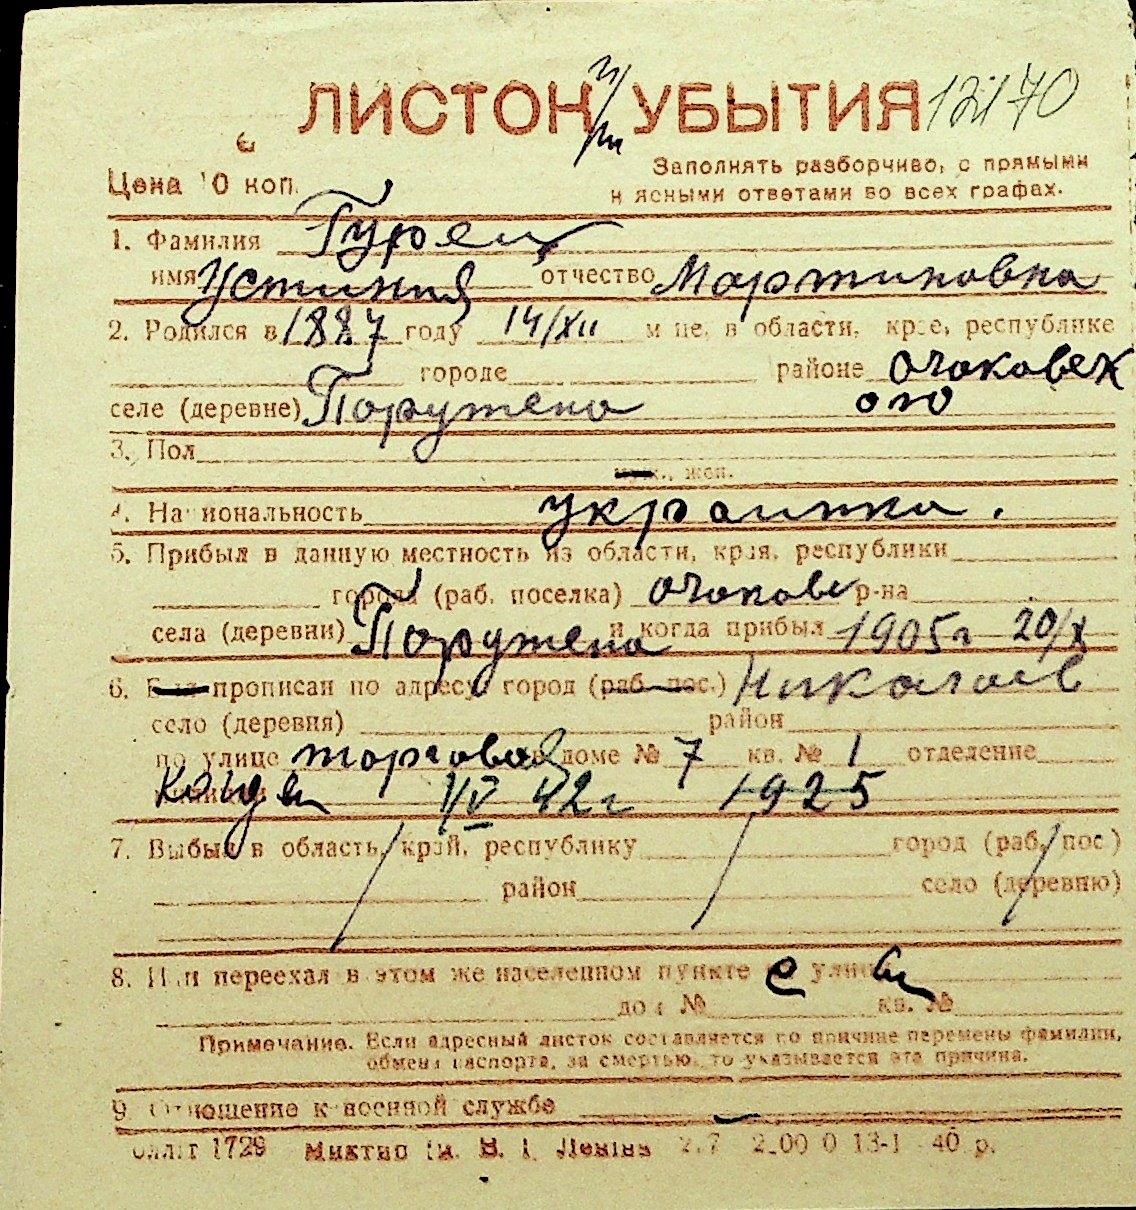 ЛИСТОК УБЫТИЯ 12170
Цена 10 коп. Заполнять разборчиво, с прямыми
и ясными ответами во всех графах.
1. Фамилия Гурец
имя Устиния отчество Мартиновна
2. Родился в 1887 году 14/XII м-це, в области, крае, республике
городе районе Очаковск
селе (деревне) Парутено ого
3. Пол
муж., жен.
4. Национальность украинка.
5. Прибыл в данную местность из области, края, республики
города (раб. поселка) Очаков р-на
села (деревни) Парутено и когда прибыл 1905г 20/X
6. Был прописан по адресу: город (раб. пос.) Николаев
село (деревня) район
по улице торговая доме № 7 кв. № 1 отделение
милиции когда 1/IV 42г 1925
7. Выбыл в область, край, республику город (раб. пос.)
район село (деревню)
8. Или переехал в этом же населенном пункте с улицы
дом № кв. №
Примечание. Если адресный листок составляется по причине перемены фамилии,
обмена паспорта, за смертью, то указывается эта причина.
9. Отношение к военной службе
Обллит 1729 2.00 0 13-1 40 р.